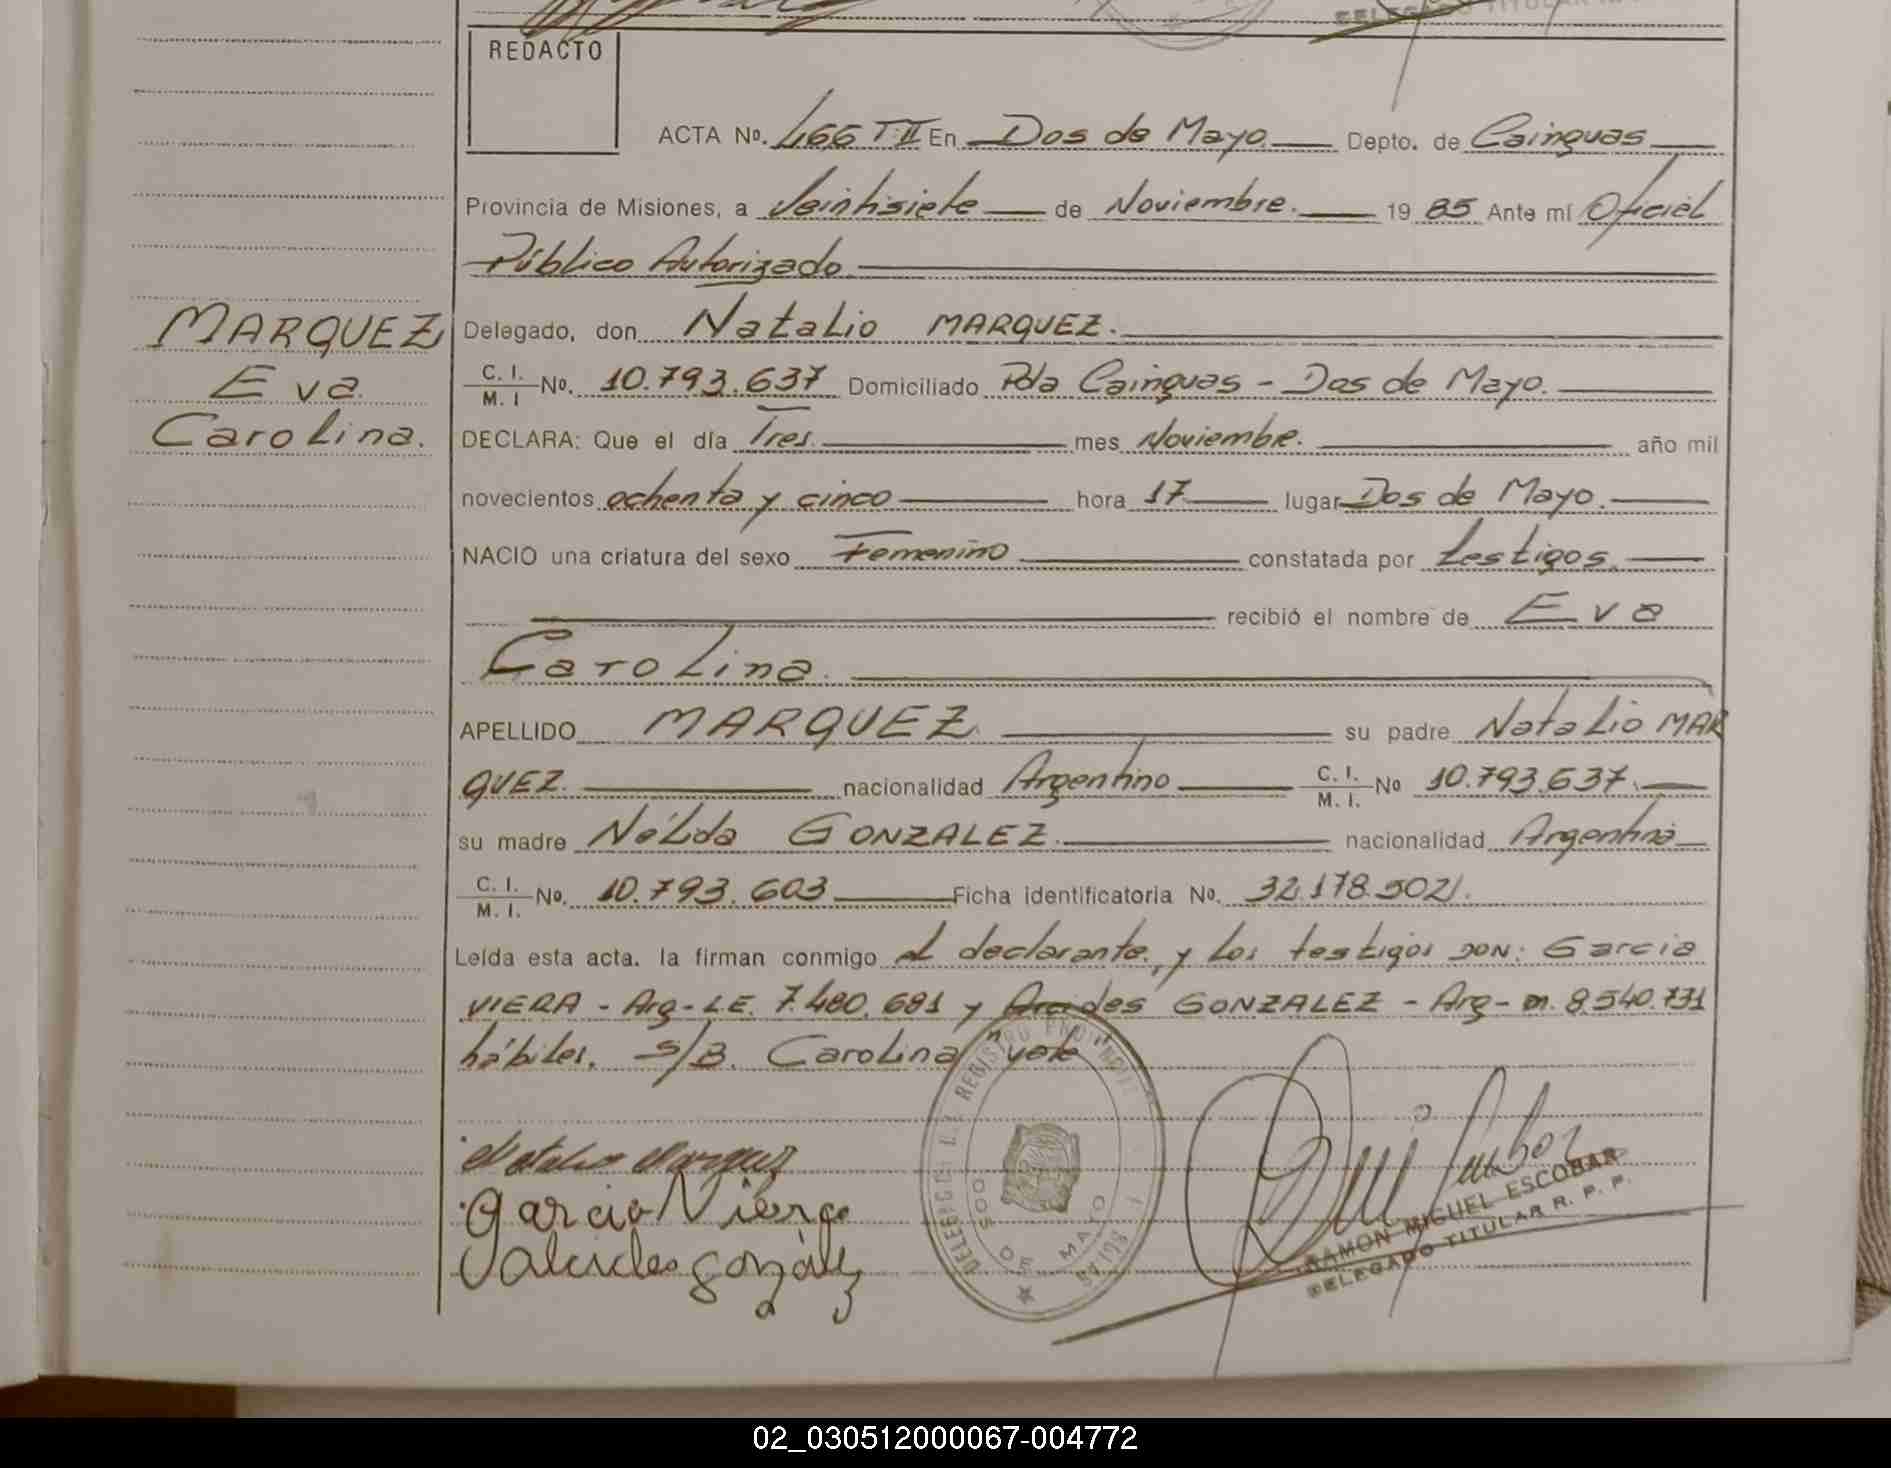 DELEGADO TITULAR
REDACTO
ACTA Nº. 466 T II En Dos de Mayo. Depto. de Cainguas
Provincia de Misiones, a Veintisiete de Noviembre. 19 85 Ante mí Oficial
Público Autorizado
MARQUEZ
Eva
Carolina.
Delegado, don Natalio MARQUEZ.
C. I. / M. I Nº. 10.793.637 Domiciliado Pda Cainguas - Dos de Mayo.
DECLARA: Que el día Tres. mes Noviembre. año mil
novecientos ochenta y cinco hora 17 lugar Dos de Mayo.
NACIO una criatura del sexo Femenino constatada por testigos.
recibió el nombre de Eva
Carolina.
APELLIDO MARQUEZ su padre Natalio MAR
QUEZ. nacionalidad Argentino C. I. / M. I. Nº 10.793.637.
su madre Nélda GONZALEZ. nacionalidad Argentina
C. I. / M. I. Nº. 10.793.603 Ficha identificatoria Nº. 32.178.502.
Leída esta acta. la firman conmigo el declarante, y los testigos DON: Garcia
VIERA - Arg - L.E. 7.480.681 y des GONZALEZ - Arg - m. 8.540.731
hábiles. S/B. Carolina "vale"
Natalio Marquez
Garcia Viera
Alcides gonzález
DOS DE MAYO
RAMON MIGUEL ESCOBAR
DELEGADO TITULAR R. P. P.
02_030512000067-004772